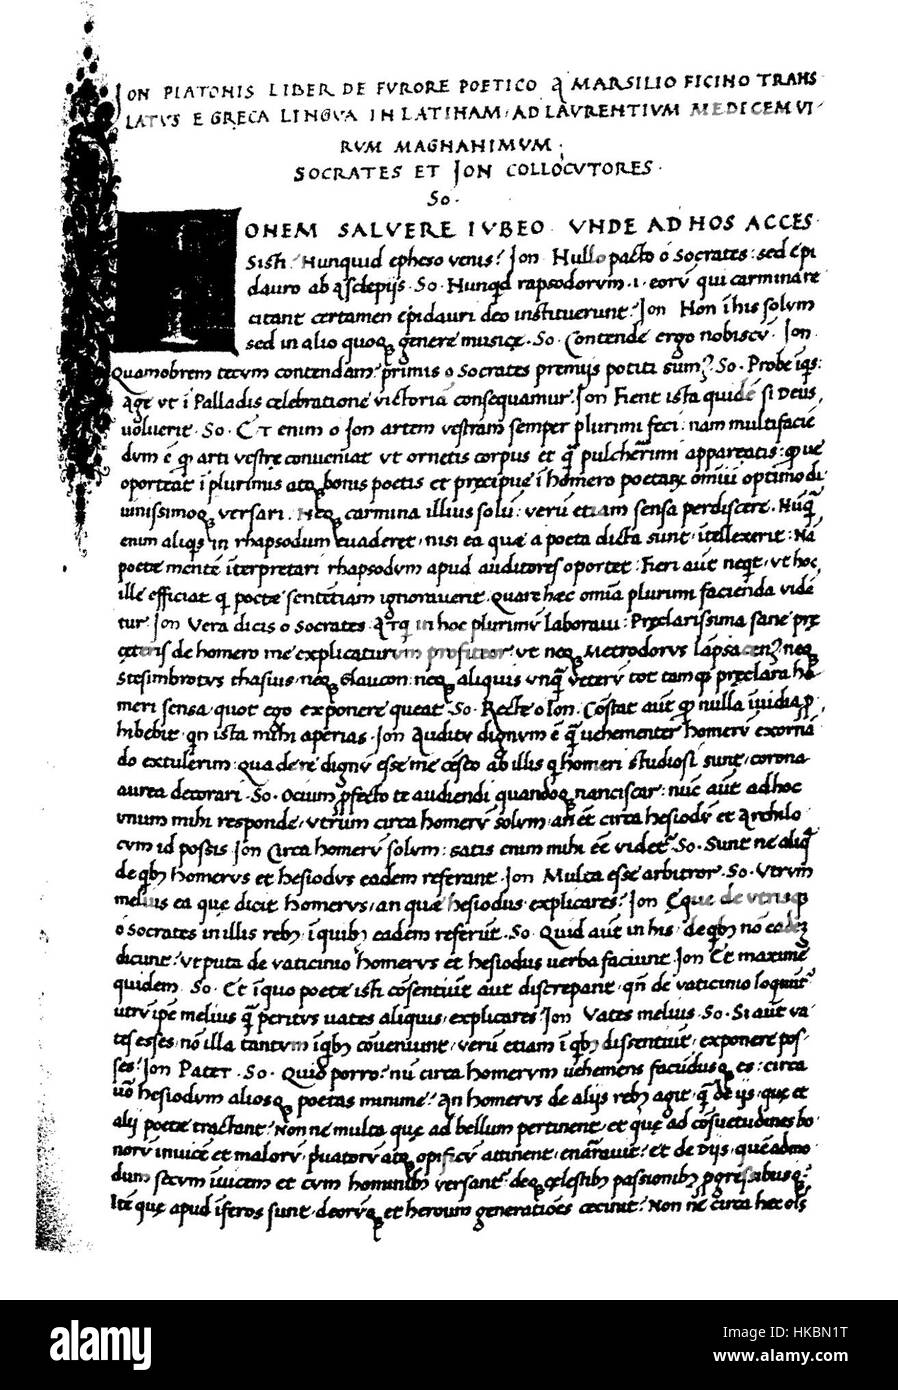 ION PLATONIS LIBER DE FVRORE POETICO A MARSILIO FICINO TRANS
LATVS E GRECA LINGVA IN LATINAM · AD LAVRENTIVM MEDICEM VI
RVM MAGNANIMVM ·
SOCRATES ET ION COLLOCVTORES ·
So ·
IONEM SALVERE IVBEO VNDE AD HOS ACCES
sisti? Nunquid epheso venis? Ion Nullo pacto o Socrates : sed epi
dauro ab asclepijs · So · Nunqd rapsodorum · i · eorū qui carmina re
citant certamen epidauri deo instituerunt? Ion Non ī his solum
sed in alio quoq genere musicę · So · Contende ergo nobiscū · Ion ·
Quamobrem tecum contendam? primis o Socrates premijs potiti sum? So · Probe iqs :
Age vt ī Palladis celebratione victoriā consequamur Ion Fient ista quidē si Deus
voluerit · So · Et enim o Ion artem vestram semper plurimi feci : nam multifaciē
dum ē q arti vestrę conveniat vt ornetis corpus et q pulcherimi appareatis : q ve
oporteat ī plurimis atq bonis poetis et pręcipue ī homero poetarꝫ omniū optimo di
uinissimoq versari · Neq carmina illius solū : verū etiam sensa perdiscere · Nūq
enim aliquis in rhapsodum euaderet · nisi ea quę a poeta dicta sunt · ītellexerit : Nā
poetę mentē īterpretari rhapsodum apud auditores oportet : Fieri aūt neqt · vt hoc
ille efficiat q poetę sententiam ignorauerit · quare hęc omīa plurimi facienda vidē
tur · Ion Vera dicis o Socrates · Atq in hoc plurimū laboraui : Pręclarissima sane pre
ceteris de homero me explicaturum profiteor · vt neq Metrodorus lapsacenꝫ neq
stesimbrotus thasius · neq Glaucon · neq aliquis unq veterū tot tamq pręclara ho
meri sensa quot ego exponere queat · So · Recte o Ion · Cōstat aūt q nulla īuidia p
hibebit · qn ista mihi aperias · Ion Auditu dignum ē q vehementer homerū exornā
do extulerim : qua de re dignū esse me cēsto ab illis q homeri studiosi sunt · corona
aurea decorari · So · Ocium pfecto te audiendi quandoq nanciscar : nūc aūt ad hoc
vnum mihi responde · vtrum circa homerū solum · an ēt circa hesiodū et Archilo
cum id possis Ion Circa homerū solum : satis enim mihi eē videtᵣ · So · Sunt ne aliq
de qb homerus et hesiodus eadem referant · Ion Multa esse arbitror · So · Vtrum
melius ea que dicit homerus · an quæ hesiodus explicares? Ion Ęque de vtrisq
o Socrates in illis rebꝫ · ī quibꝫ eadem referūt · So · Quid aūt in his · de qbꝫ nō eadeꝫ
dicunt? vt puta de vaticinio homerus et hesiodus uerba faciunt · Ion Et maxime
quidem · So · Et ī quo poetę isti cōsentiūt aut discrepant · qn̄ de vaticinio loqunt
utrū ipē melius q peritus uates aliquis · explicares? Ion Vates melius · So · Si aūt va
tes esses · nō illa tantum ī qbꝫ cōveniunt · verū etiam ī qbꝫ dissentiūt · exponere pos-
ses? Ion Patet · So · Quid porro? nū circa homerum vehemens facūdusq es : circa
uō hesiodum aliosq poetas minime? An homerus de alijs rebꝫ agit · q de ijs · quę et
alij poetę tractant? Non ne multa quę ad bellum pertinent · et quę ad cōsuetudines bo
norū īuicē et malorū · pruatorū atq opificū attinent · enarrauit? et de Dijs · quēadmo
dum secum īuicem et cum hominibꝫ versant? deq cęlestibꝫ passionibꝫ pgressibusq?
Itē quę apud īferos sunt · deorūq et heroum generatiōes cecinit? Non ne circa hęc oīs
alamy
Image ID: HKBN1T
www.alamy.com